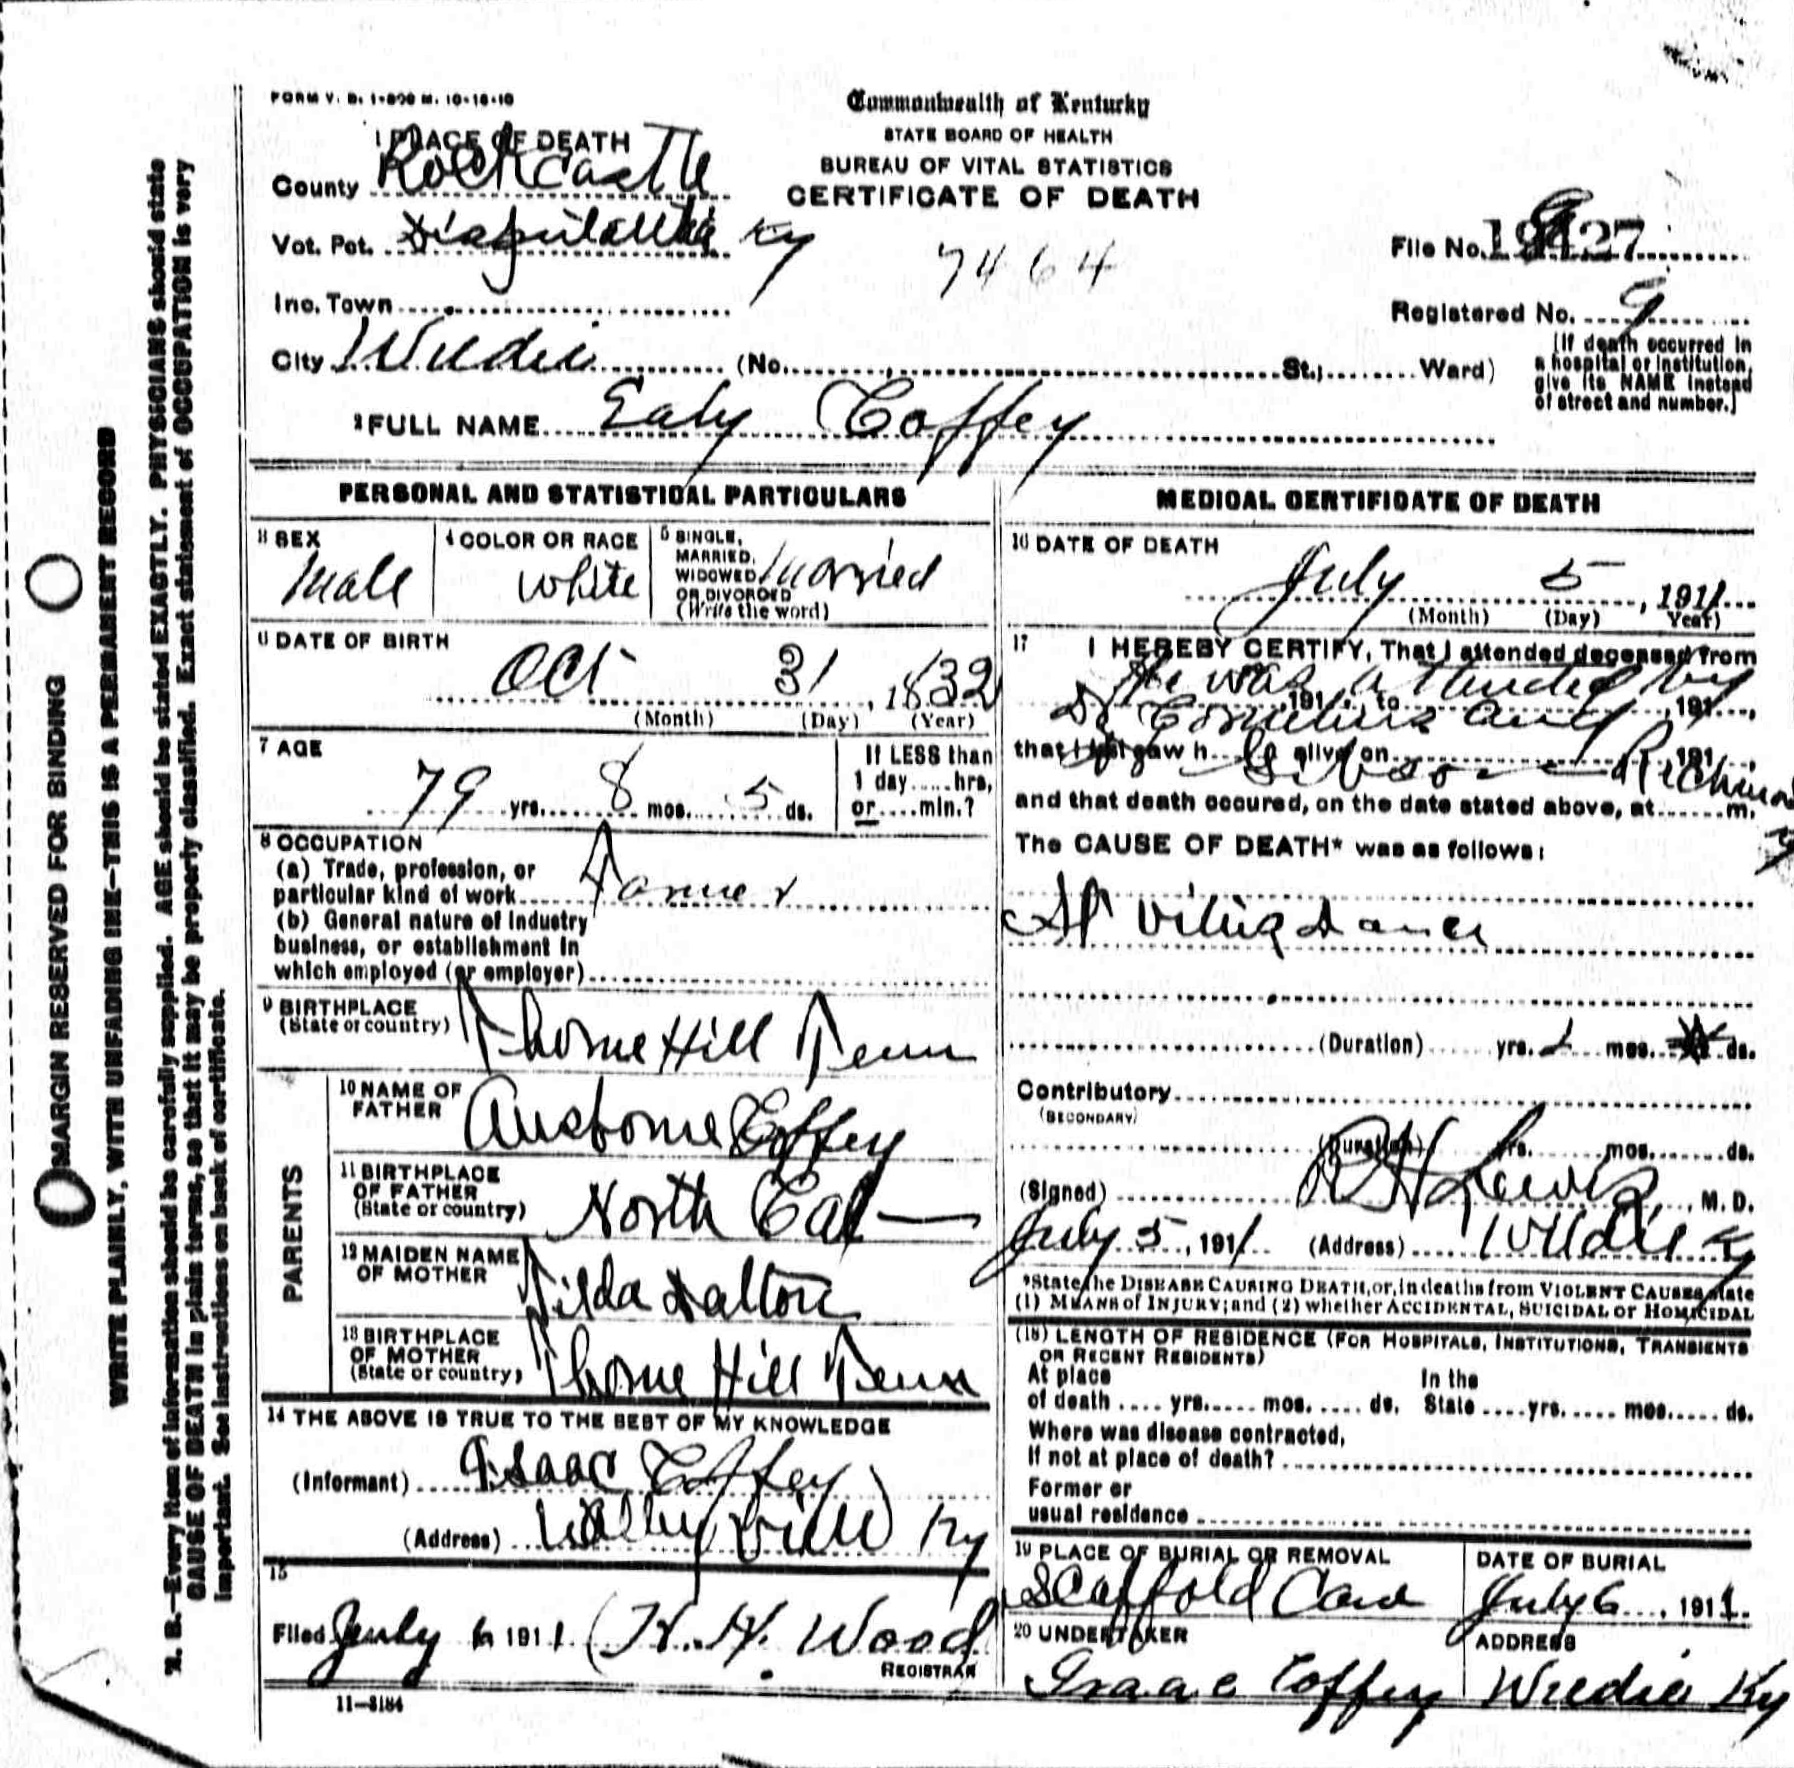 FORM V. S. 1-500 M. 10-18-10
Commonwealth of Kentucky
STATE BOARD OF HEALTH
BUREAU OF VITAL STATISTICS
CERTIFICATE OF DEATH
1 PLACE OF DEATH
County Rockcastle
Vot. Pct. Disputanta Ky
7464
File No. 427
Inc. Town
Registered No. 9
City Wildie (No. St.; Ward)
[If death occurred in
a hospital or institution,
give its NAME instead
of street and number.]
2 FULL NAME Ealy Coffey
PERSONAL AND STATISTICAL PARTICULARS
3 SEX
Male
4 COLOR OR RACE
White
5 SINGLE,
MARRIED,
WIDOWED
OR DIVORCED
(Write the word)
Married
6 DATE OF BIRTH
Oct 31, 1832
(Month) (Day) (Year)
7 AGE
79 yrs. 8 mos. 5 ds.
If LESS than
1 day hrs,
or min.?
8 OCCUPATION
(a) Trade, profession, or
particular kind of work Farmer
(b) General nature of industry
business, or establishment in
which employed (or employer)
9 BIRTHPLACE
(State or country) Thorne Hill Tenn
PARENTS
10 NAME OF
FATHER Ausborne Coffey
11 BIRTHPLACE
OF FATHER
(State or country) North Cal
12 MAIDEN NAME
OF MOTHER Tilda Dalton
13 BIRTHPLACE
OF MOTHER
(State or country) Thorne Hill Tenn
14 THE ABOVE IS TRUE TO THE BEST OF MY KNOWLEDGE
(Informant) Isaac Coffey
(Address) Ky
15
Filed July 6 1911 H. H. Wood
REGISTRAR
11-3184
MEDICAL CERTIFICATE OF DEATH
16 DATE OF DEATH
July 5, 1911
(Month) (Day) Year)
17 I HEREBY CERTIFY, That I attended deceased from
, 191 , to , 191 ,
He was attended by
Dr Cornelius and
that I last saw h alive on , 191 ,
Gibson Richmond
Ky
and that death occured, on the date stated above, at m.
The CAUSE OF DEATH* was as follows:
St Vitus Dance
(Duration) yrs. 2 mos. ds.
Contributory
(SECONDARY)
(Duration) yrs. mos. ds.
(Signed) R H Lewis, M. D.
July 5, 1911 (Address) Wildie Ky
*State the DISEASE CAUSING DEATH, or, in deaths from VIOLENT CAUSES state
(1) MEANS of INJURY; and (2) whether ACCIDENTAL, SUICIDAL or HOMICIDAL
(18) LENGTH OF RESIDENCE (FOR HOSPITALS, INSTITUTIONS, TRANSIENTS
OR RECENT RESIDENTS)
At place In the
of death yrs. mos. ds. State yrs. mos. ds.
Where was disease contracted,
If not at place of death?
Former or
usual residence
19 PLACE OF BURIAL OR REMOVAL
Scaffold Cane
DATE OF BURIAL
July 6, 1911.
20 UNDERTAKER
Isaac Coffey
ADDRESS
Wildie Ky
MARGIN RESERVED FOR BINDING
WRITE PLAINLY, WITH UNFADING INK—THIS IS A PERMANENT RECORD
N. B.—Every item of information should be carefully supplied. AGE should be stated EXACTLY. PHYSICIANS should state
CAUSE OF DEATH in plain terms, so that it may be properly classified. Exact statement of OCCUPATION is very
important. See instructions on back of certificate.